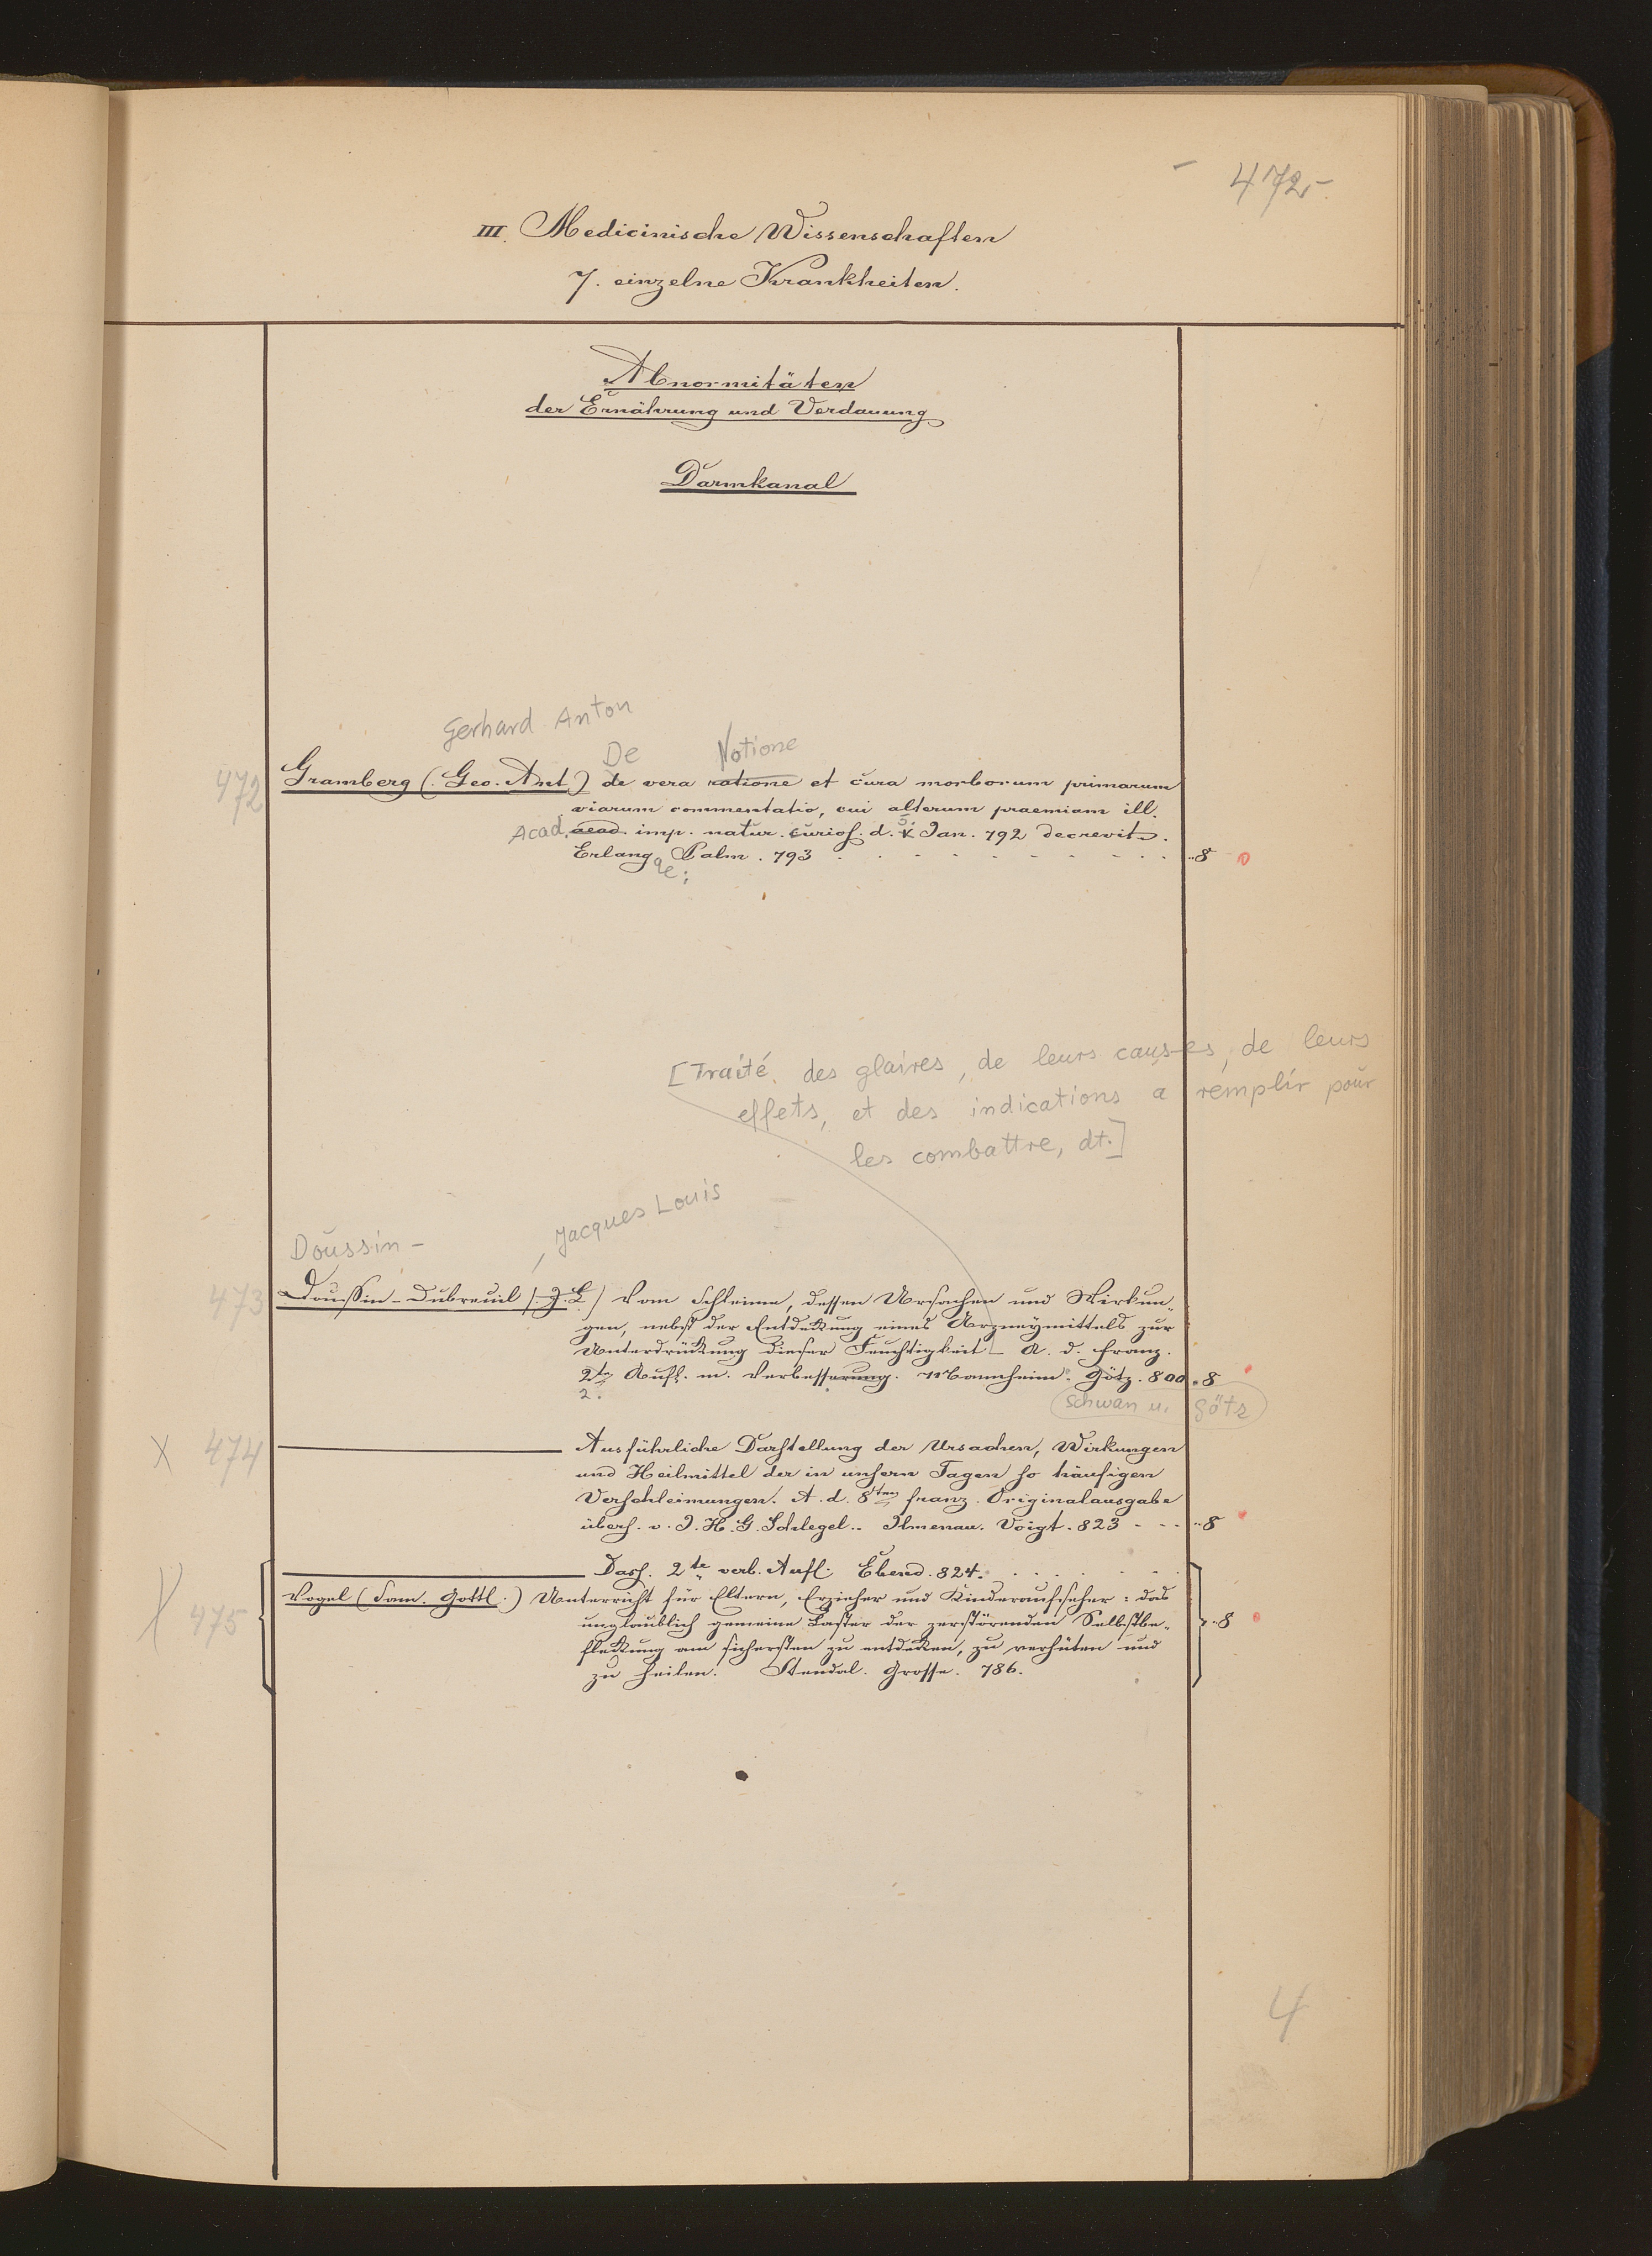 - 472,-
III. Medicinische Wissenschaften
7. einzelne Krankheiten.
Abnormitäten
der Ernährung und Verdauung
Darmkanal
Gerhard Anton
De Notione
472 Gramberg (Geo. Ant.) de vera ratione et cura morborum primarum
viarum commentatio, cui alterum praemiam ill.
Acad. acad. imp. natur. curios. d. 5. Jan. 792 decrevit.
Erlang. Palm. 793 . . . . . . . . . . ..8
ae;
[Traité des glaires, de leurs causes, de leurs
effets, et des indications a remplir pour
les combattre, dt.]
, Jacques Louis
Doussin-
473 Doussin-Dubreuil (J. L.) Vom Schleime, dessen Ursachen und Wirkun-
gen, nebst der Entdekung eines Arzneymittels zur
Unterdrükung dieser Feuchtigkeit - A. d. franz.
2te Aufl. m. Verbesserung. Mannheim. Götz. 800 ..8
2.
Schwan u. Götz
X 474 Ausführliche Darstellung der Ursachen, Wirkungen
und Heilmittel der in unsern Tagen so häufigen
Verschleimungen. A. d. 8ten franz. Originalausgabe
übers. v. J. H. G. Schlegel.. Ilmenau. Voigt. 823 - - - ..8
Dass. 2te verb. Aufl. Ebend. 824. . . . . . .
X 475 Vogel (Sam. Gottl.) Unterricht für Eltern, Erzieher und Kinderaufseher: das
unglaublich gemeine Laster der zerstörenden Selbstbe-
flekung am sichersten zu entdeken, zu verhüten und ..8
zu heilen. Stendal. Grosse. 786.
4